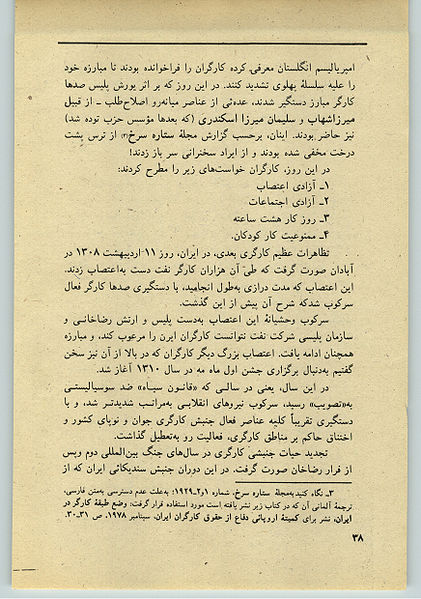 امپریالیسم انگلستان معرفی کرده کارگران را فراخوانده بودند تا مبارزه خود
را علیه سلسلهٔ پهلوی تشدید کنند. در این روز که بر اثر یورش پلیس صدها
کارگر مبارز دستگیر شدند، عده‌ئی از عناصر میانه‌رو اصلاح‌طلب ـ از قبیل
میرزاشهاب و سلیمان میرزا اسکندری (که بعدها مؤسس حزب توده شد)
نیز حاضر بودند. اینان، برحسب گزارش مجلهٔ ستاره سرخ(۳) از ترس پشت
درخت مخفی شده بودند و از ایراد سخنرانی سر باز زدند!
در این روز، کارگران خواست‌های زیر را مطرح کردند:
۱ـ آزادی اعتصاب
۲ـ آزادی اجتماعات
۳ـ روز کار هشت ساعته
۴ـ ممنوعیت کار کودکان.
تظاهرات عظیم کارگری بعدی، در ایران، روز ۱۱ اردیبهشت ۱۳۰۸ در
آبادان صورت گرفت که طی آن هزاران کارگر نفت دست به‌اعتصاب زدند.
این اعتصاب که مدت درازی به‌طول انجامید، با دستگیری صدها کارگر فعال
سرکوب شدکه شرح آن پیش از این گذشت.
سرکوب وحشیانهٔ این اعتصاب به‌دست پلیس و ارتش رضاخانی و
سازمان پلیسی شرکت نفت نتوانست کارگران ایرن را مرعوب کند، و مبارزه
همچنان ادامه یافت. اعتصاب بزرگ دیگر کارگران که در بالا از آن نیز سخن
گفتیم به‌دنبال برگزاری جشن اول ماه مه در سال ۱۳۱۰ آغاز شد.
در این سال، یعنی در سالی که «قانون سیاه» ضد سوسیالیستی
به‌«تصویب» رسید، سرکوب نیروهای انقلابی به‌مراتب شدیدتر شد، و با
دستگیری تقریباً کلیه عناصر فعال جنبش کارگری جوان و نوپای کشور و
اختناق حاکم بر مناطق کارگری، فعالیت رو به‌تعطیل گذاشت.
تجدید حیات جنبشی کارگری در سال‌های جنگ بین‌المللی دوم وپس
از فرار رضاخان صورت گرفت. در این دوران جنبش سندیکائی ایران که از
۳ـ نگاه کنید به‌مجلهٔ ستاره سرخ، شماره ۱و۲ـ۱۹۲۹؛ به‌علت عدم دسترسی به‌متن فارسی،
ترجمهٔ آلمانی آن که در کتاب زیر نشر یافته است مورد استفاده قرار گرفت: وضع طبقهٔ کارگر در
ایران، نشر برای کمیتهٔ اروپائی دفاع از حقوق کارگران ایران، سپتامبر ۱۹۷۸، ص ۳۱ـ۳۰.
۳۸